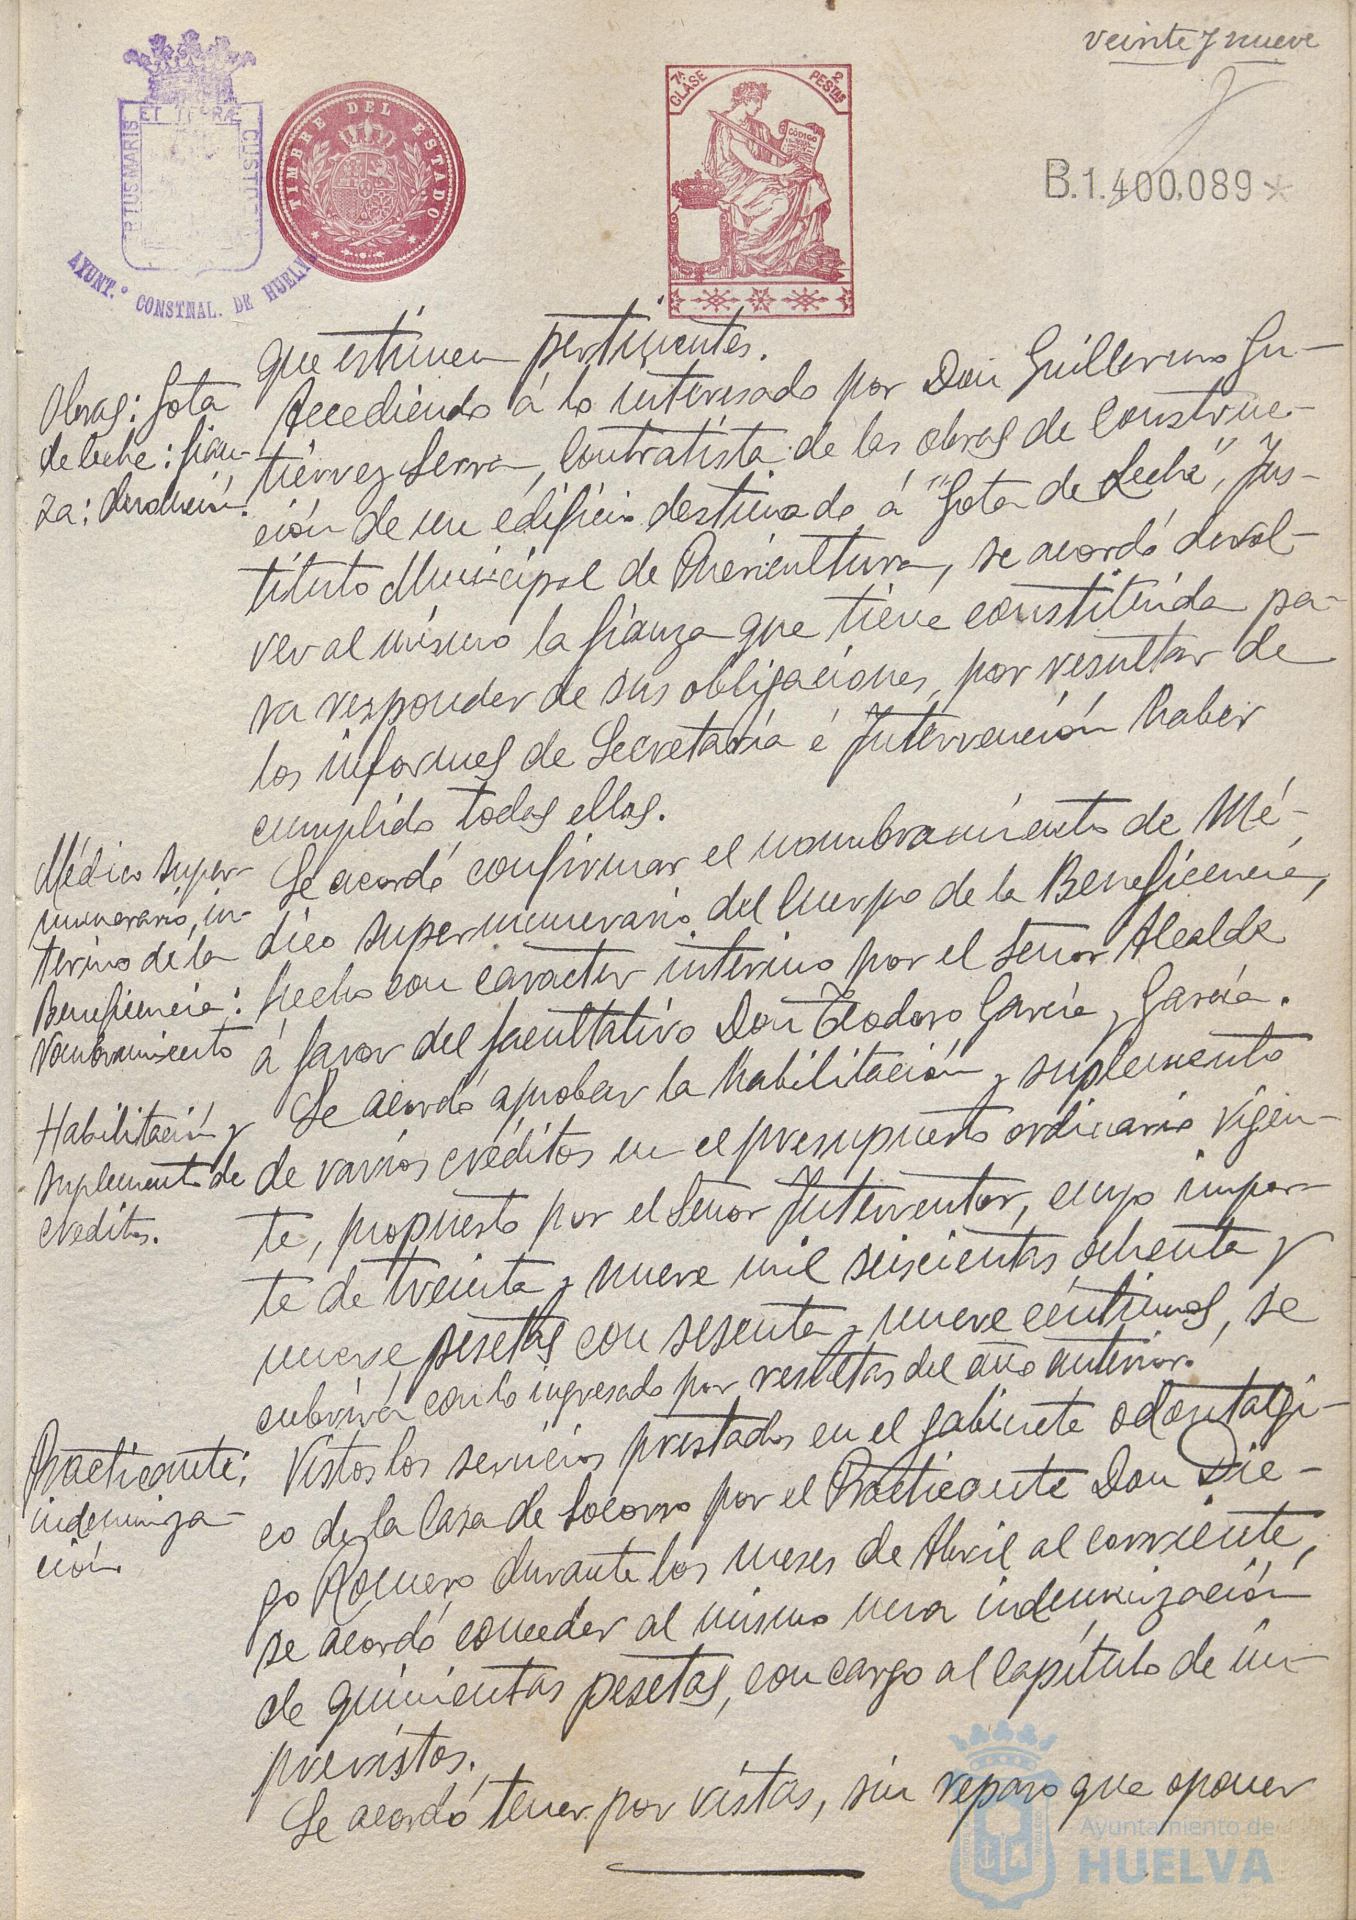 veinte y nueve
7ª CLASE
2 PESTAS
CÓDIGO
TIMBRE DEL ESTADO
PORTUS MARIS ET TERRÆ CUSTODIA
AYUNT.º CONSTNAL. DE HUELVA
B.1.400.089
que estimen pertinentes.
Obras: Gota
de leche: fian-
za: devolución.
Accediendo á lo interesado por Don Guillermo Gu-
tiérrez Serra, contratista de las obras de construc-
ción de un edificio destinado á "Gota de Leche", Ins-
tituto Municipal de Puericultura, se acordó devol-
ver al mismo la fianza que tiene constituida pa-
ra responder de sus obligaciones, por resultar de
los informes de Secretaría é Intervención haber
cumplido todas ellas.
Médico super-
numerario, in-
terino de la
Beneficencia:
Nombramiento
Se acordó confirmar el nombramiento de Mé-
dico supernumerario del Cuerpo de la Beneficencia,
hecho con caracter interino por el Señor Alcalde
á favor del facultativo Don Teodoro García y García.
Habilitación y
suplemento de
créditos.
Se acordó aprobar la habilitación y suplemento
de varios créditos en el presupuesto ordinario vigen-
te, propuesto por el Señor Interventor, cuyo impor-
te de treinta y nueve mil seiscientas ochenta y
nueve pesetas con sesenta y nueve céntimos, se
cubrirá con lo ingresado por resultas del año anterior.
Practicante:
indemniza-
ción.
Vistos los servicios prestados en el gabinete odontálgi-
co de la Casa de Socorro por el Practicante Don Die-
go Romero durante los meses de Abril al corriente,
se acordó conceder al mismo una indemnización
de quinientas pesetas, con cargo al capítulo de im-
previstos.
Se acordó tener por vistas, sin reparo que oponer
Ayuntamiento de
HUELVA